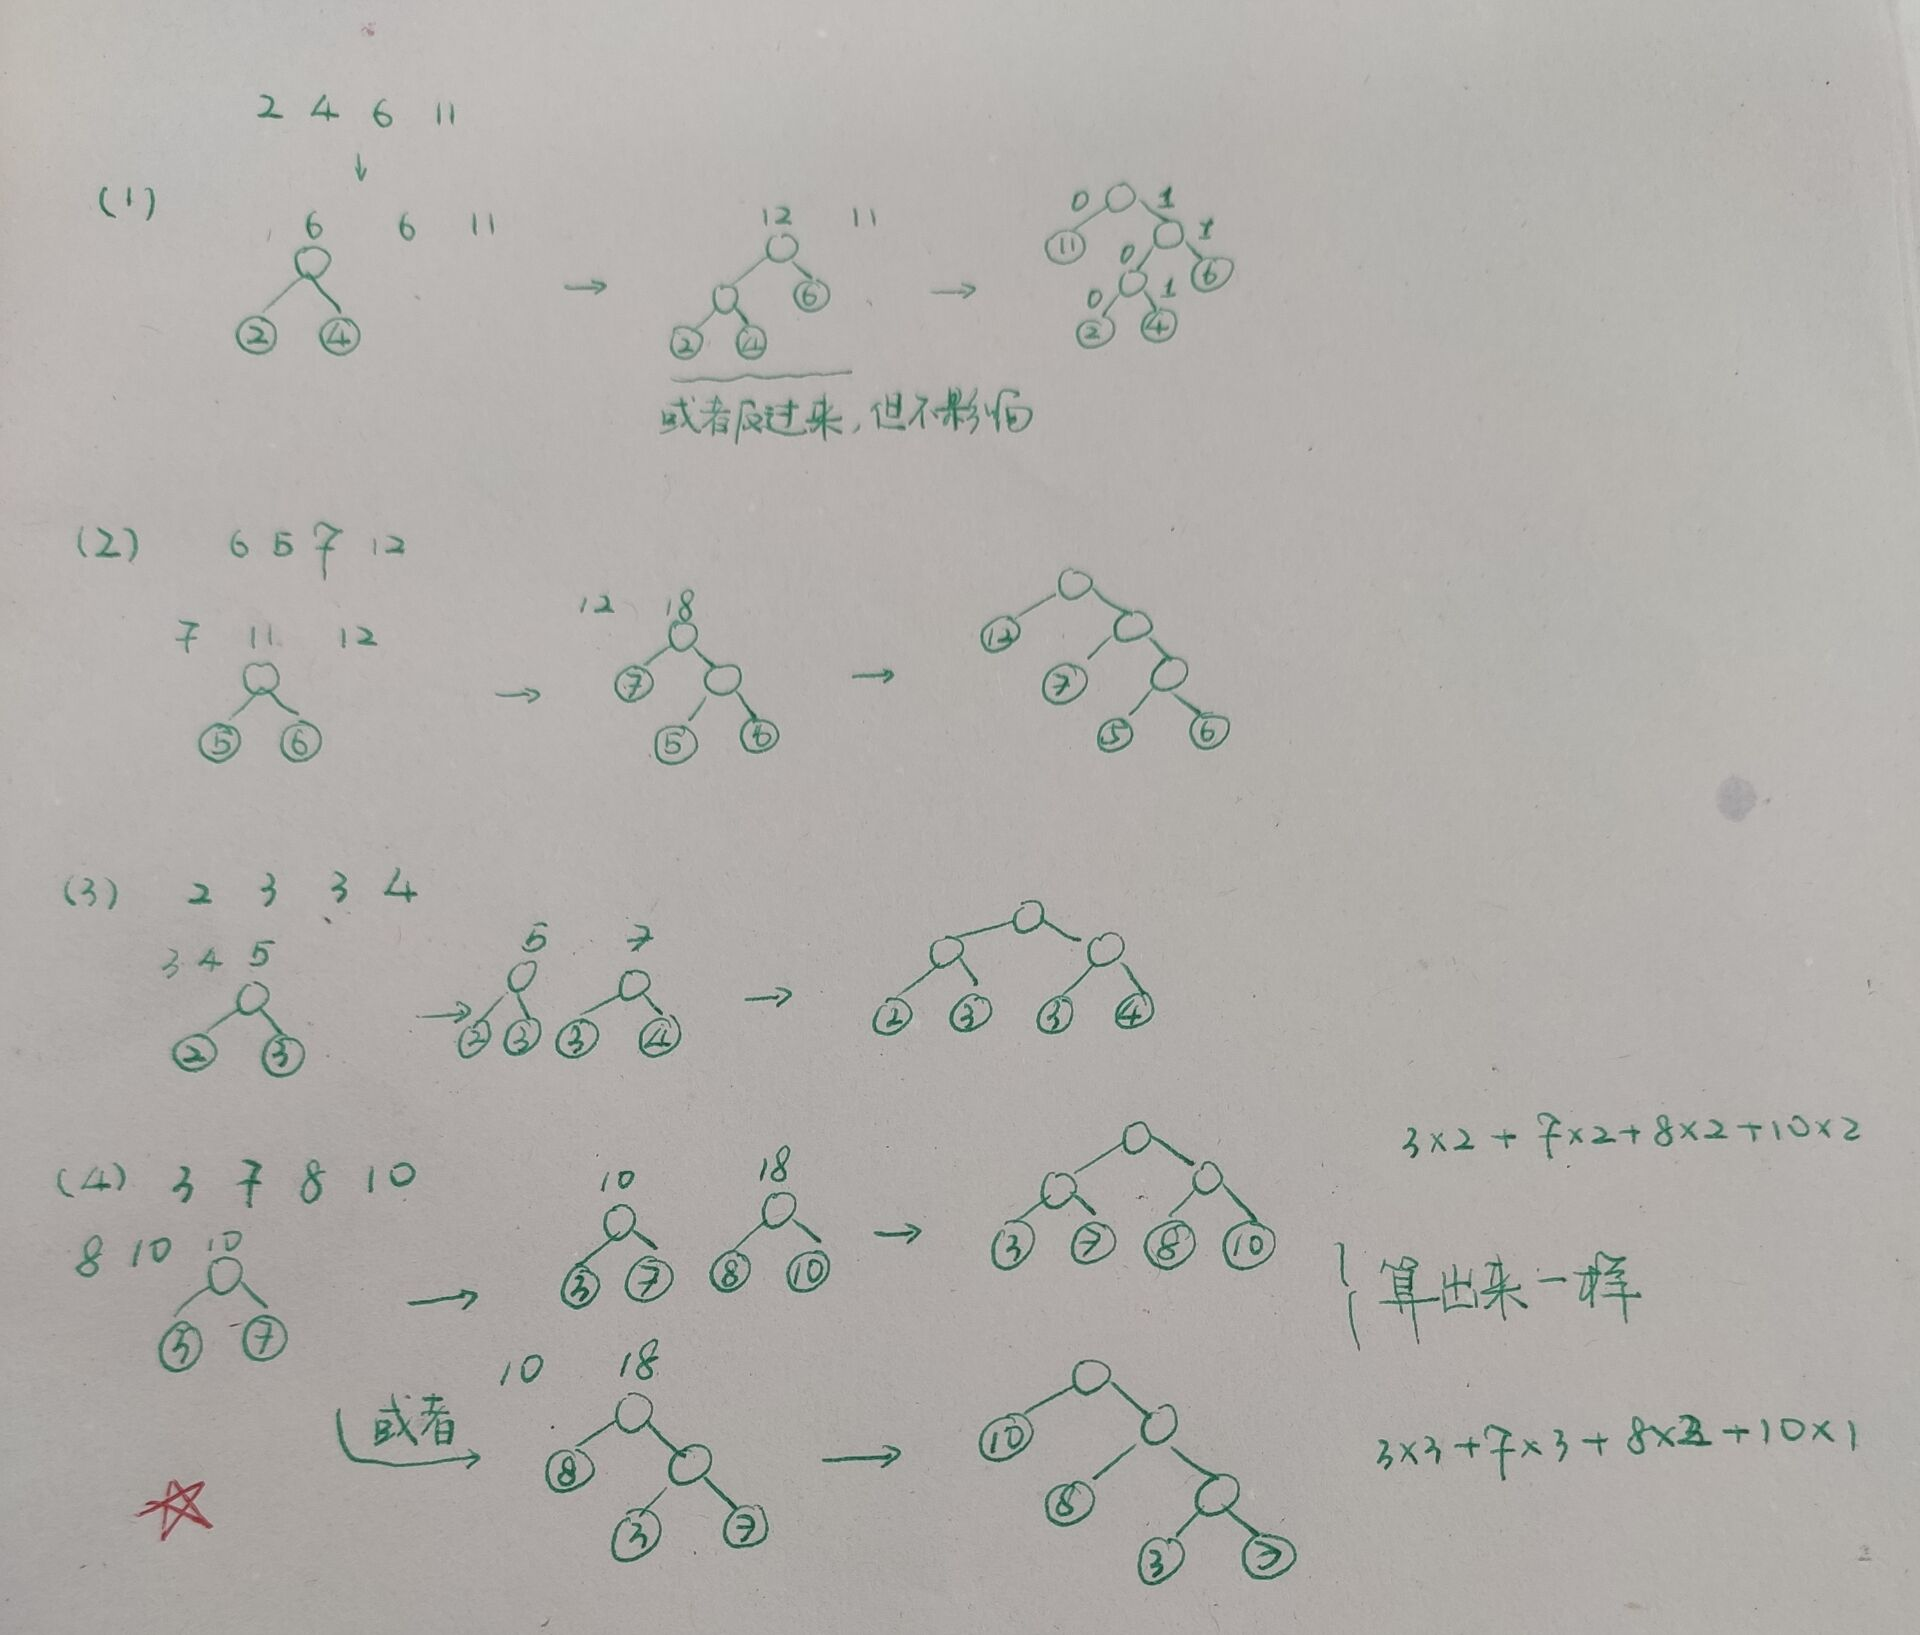 2 4 6 11
↓
(1)
6 6 11
2 4
→
12 11
6
2 4
→
0 1
11 0 1
6
0 1
2 4
或者反过来，但不影响
(2) 6 5 7 12
7 11 12
5 6
→
12 18
7
5 6
→
12
7
5 6
(3) 2 3 3 4
3 4 5
2 3
→
5 7
2 3 3 4
→
2 3 3 4
(4) 3 7 8 10
8 10 10
3 7
→
10 18
3 7 8 10
→
3 7 8 10
3×2+7×2+8×2+10×2
算出来一样
或者
10 18
8
3 7
→
10
8
3 7
3×3+7×3+8×2+10×1